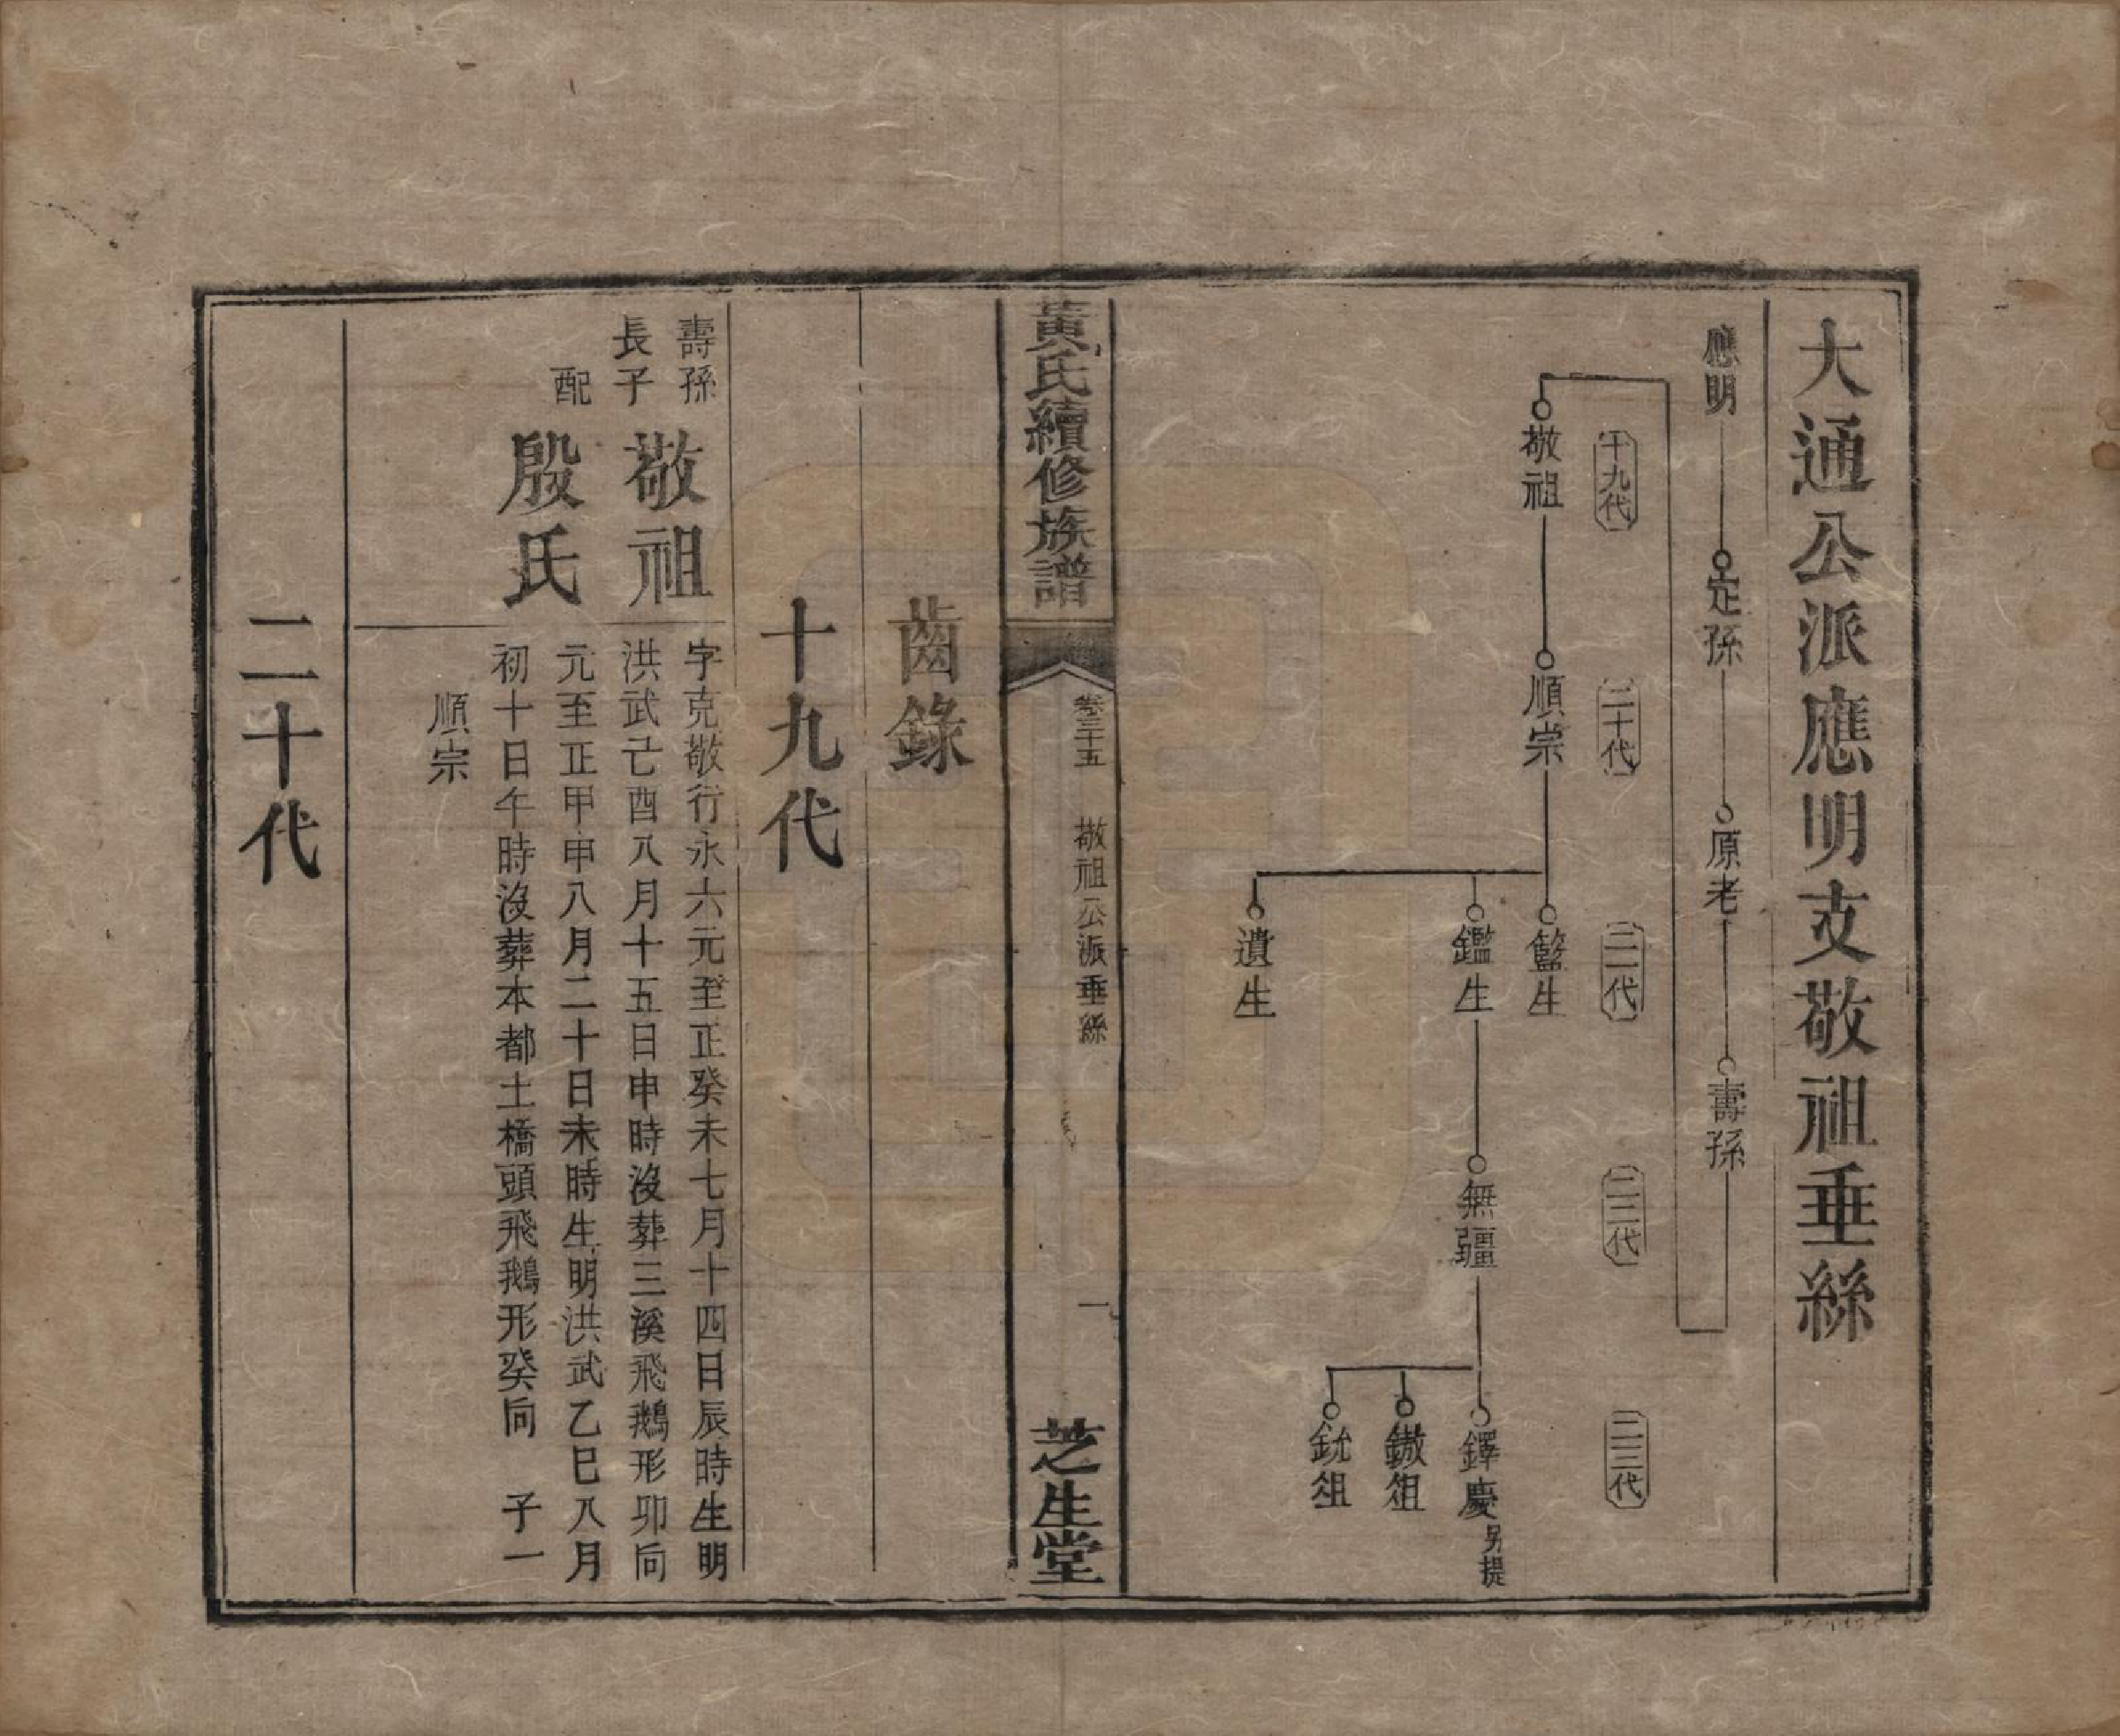 大通公派應明支敬祖垂絲
應明
定孫
原老
壽孫
十九代
二十代
二一代
二二代
二三代
敬祖
順宗
籃生
鑑生
無疆
鐸慶
另提
鏾祖
銃祖
遺生
黃氏續修族譜
卷三十五
敬祖公派垂絲
一
芝生堂
齒錄
十九代
壽孫
長子
敬祖
字克敬行永六元至正癸未七月十四日辰時生明
洪武己酉八月十五日申時沒葬三溪飛鵝形卯向
配
殷氏
元至正甲申八月二十日未時生明洪武乙巳八月
初十日午時沒葬本都土橋頭飛鵝形癸向 子一
順宗
二十代